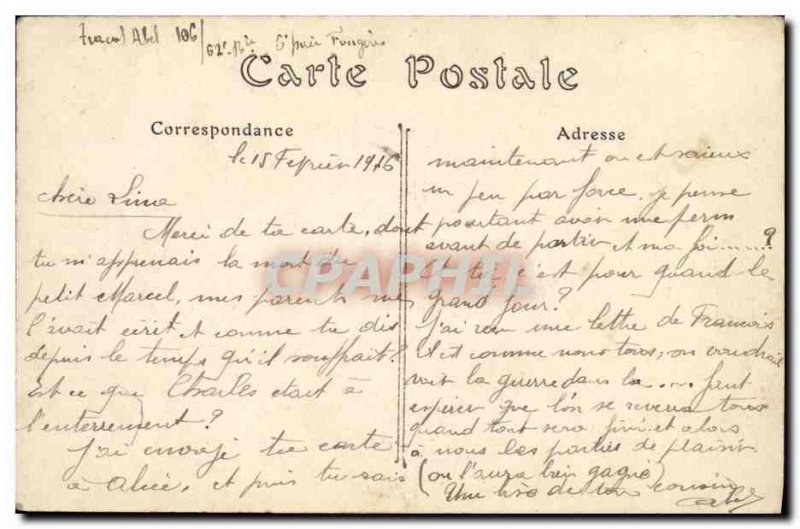 Abel 106
62e Bie
Carte Postale
Correspondance
Adresse
le 15 Fevrier 1916
Chère Lina
Merci de ta carte, dont
tu m'apprenais la mort du
petit Marcel, mes parents me
l'avait écrit et comme tu dis
depuis le temps qu'il souffrait!
Est ce que Charles etait à
l'enterrement?
J'ai envoyé ta carte
à Alice, et puis tu sais
maintenant on est sérieux
un peu par force, je pense
pourtant avoir une perm
avant de partir et ma foi.....?
Et toi c'est pour quand le
grand jour?
J'ai reçu une lettre de Francois
Il est comme nous tous, on voudrait
voir la guerre dans la .... faut
espérer que l'on se reverra tous
quand tout sera fini et alors
à nous les parties de plaisir
(on l'aura bien gagné)
Une bise de ton cousin
Abel
CPAPHIL